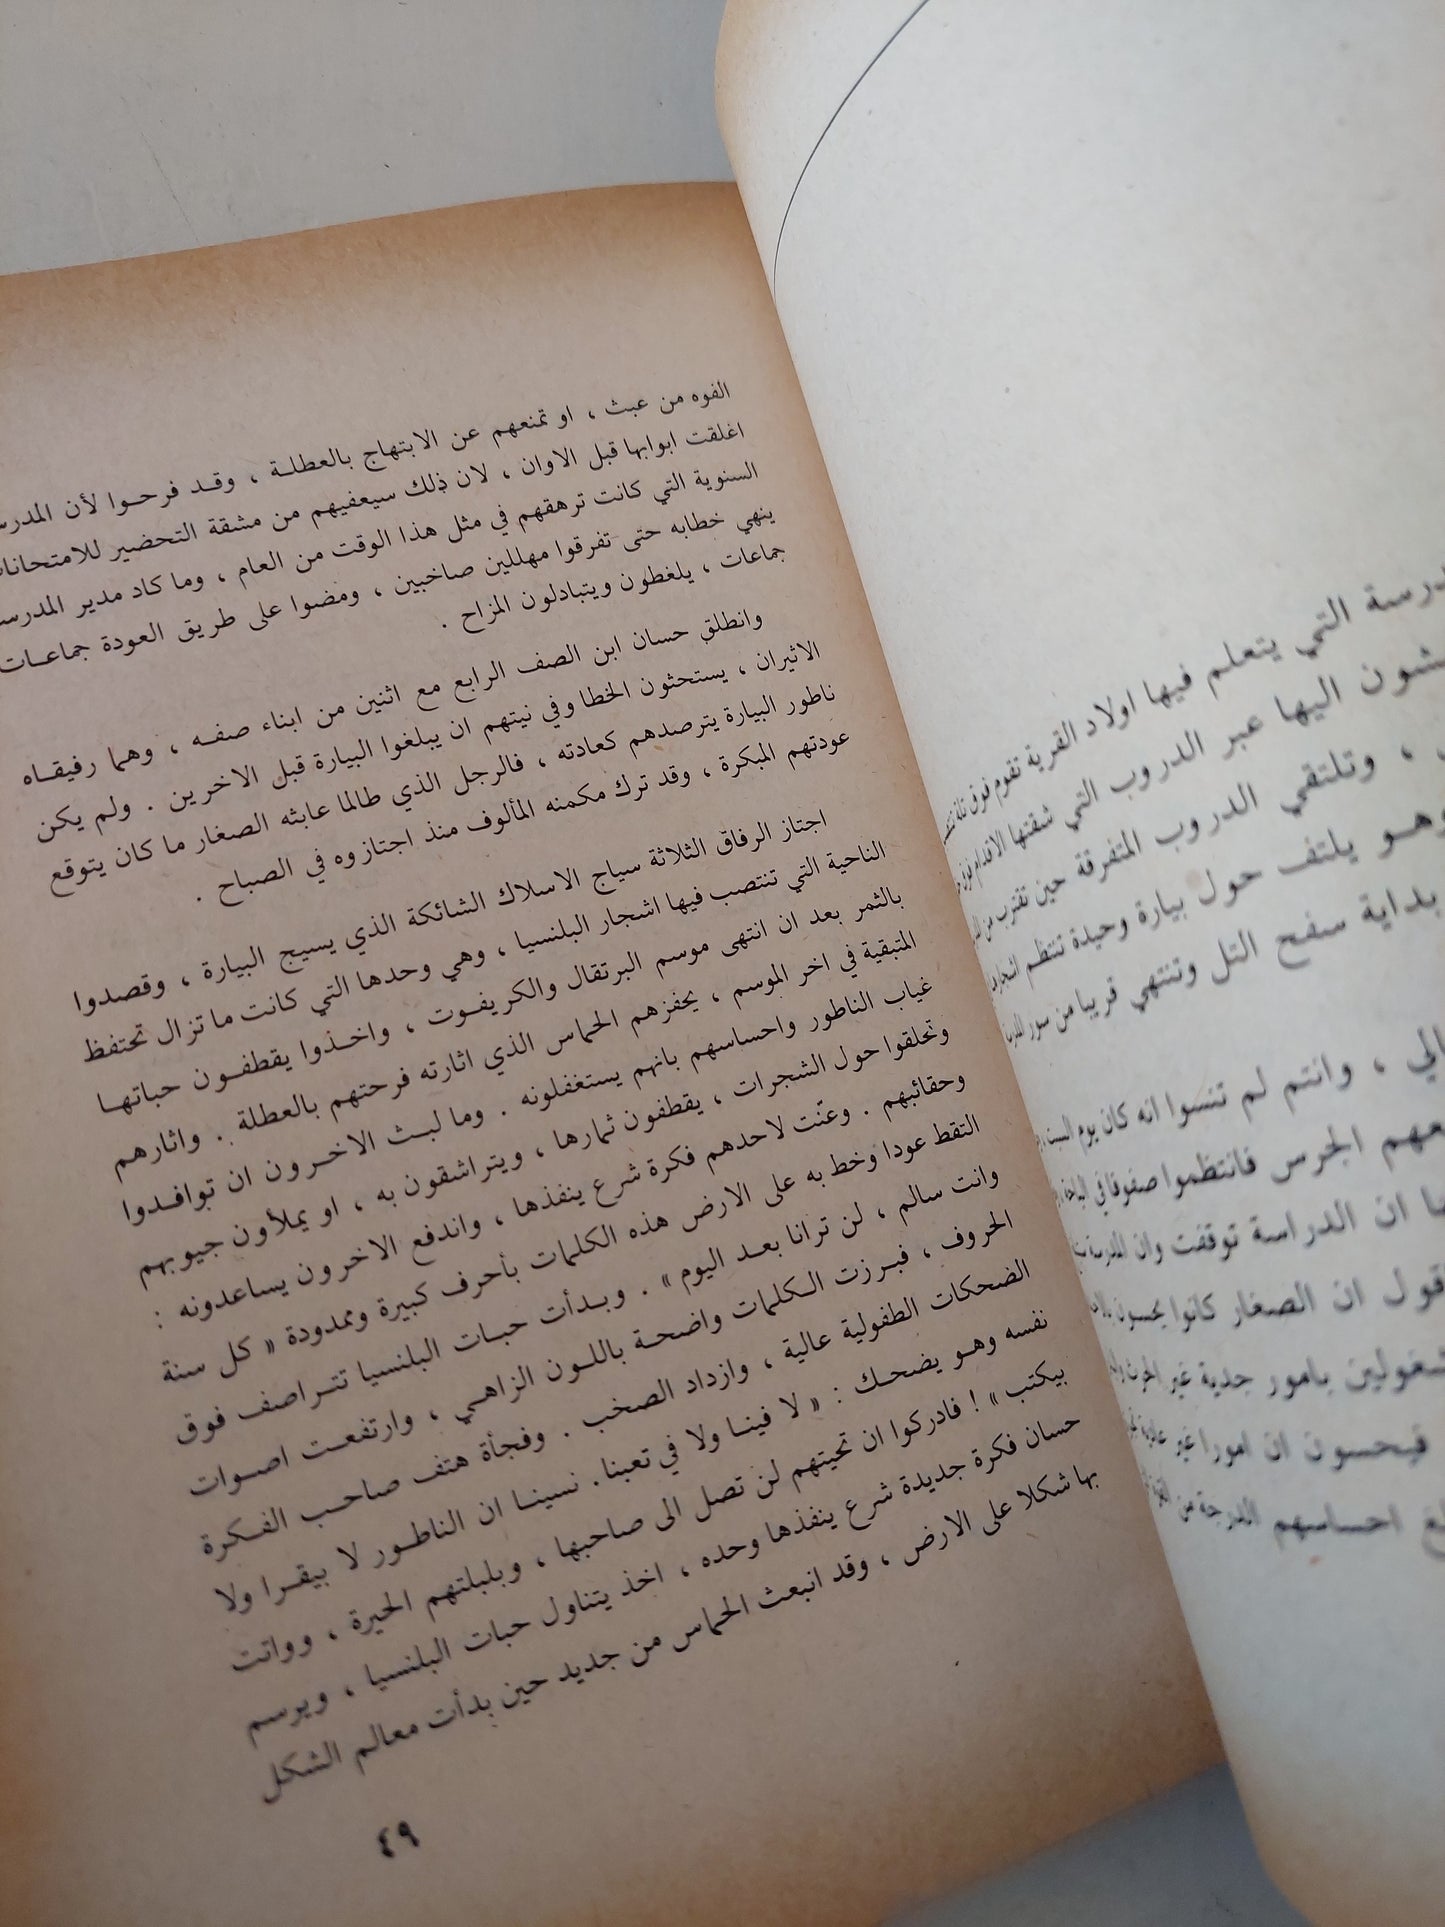 درسة التي يتعلم فيها اولاد القرية تقوم فوق تلة
شون اليها عبر الدروب التي شقتها الاقدام فوق
، وتلتقي الدروب المتفرقة حين تقترب من
وهو يلتف حول بيارة وحيدة تنتظم اشجارها
بداية سفح التل وتنتهي قريبا من سور المدرسة
الي ، وانتم لم تنسوا انه كان يوم السبت
عهم الجرس فانتظموا صفوفا في الباحة
ها ان الدراسة توقفت وان المدرسة
قول ان الصغار كانوا يحسون
شغولين بامور جدية غير الحرث
فيحسون ان امورا غير عادية
ع احساسهم الدرجة من
الفوه من عبث ، او تمنعهم عن الابتهاج بالعطلة ، وقد فرحوا لأن المدرسـ
اغلقت ابوابها قبل الاوان ، لان ذلك سيعفيهم من مشقة التحضير للامتحانات
السنوية التي كانت ترهقهم في مثل هذا الوقت من العام ، وما كاد مدير المدرسـ
ينهي خطابه حتى تفرقوا مهللين صاخبين ، ومضوا على طريق العودة جماعات
جماعات ، يلغطون ويتبادلون المزاح .
وانطلق حسان ابن الصف الرابع مع اثنين من ابناء صفه ، وهما رفيقاه
الاثيران ، يستحثون الخطا وفي نيتهم ان يبلغوا البيارة قبل الاخرين . ولم يكن
ناطور البيارة يترصدهم كعادته ، فالرجل الذي طالما عابثه الصغار ما كان يتوقع
عودتهم المبكرة ، وقد ترك مكمنه المألوف منذ اجتازوه في الصباح .
اجتاز الرفاق الثلاثة سياج الاسلاك الشائكة الذي يسيج البيارة ، وقصدوا
الناحية التي تنتصب فيها اشجار البلنسيا ، وهي وحدها التي كانت ما تزال تحتفظ
بالثمر بعد ان انتهى موسم البرتقال والكريفوت ، واخذوا يقطفون حباتها
المتبقية في اخر الموسم ، يحفزهم الحماس الذي اثارته فرحتهم بالعطلة . واثارهم
غياب الناطور واحساسهم بانهم يستغفلونه . وما لبث الاخرون ان توافدوا
وتحلقوا حول الشجرات ، يقطفون ثمارها ، ويتراشقون به ، او يملأون جيوبهم
وحقائبهم . وعنّت لاحدهم فكرة شرع ينفذها ، واندفع الاخرون يساعدونه :
التقط عودا وخط به على الارض هذه الكلمات بأحرف كبيرة وممدودة « كل سنة
وانت سالم ، لن ترانا بعد اليوم » . وبدأت حبات البلنسيا تتراصف فوق
الحروف ، فبرزت الكلمات واضحة باللون الزاهي ، وارتفعت اصوات
الضحكات الطفولية عالية ، وازداد الصخب . وفجأة هتف صاحب الفكرة
نفسه وهو يضحك : « لا فينا ولا في تعبنا . نسينا ان الناطور لا بيقرا ولا
بيكتب » ! فادركوا ان تحيتهم لن تصل الى صاحبها ، وبلبلتهم الحيرة ، وواتت
حسان فكرة جديدة شرع ينفذها وحده ، اخذ يتناول حبات البلنسيا ، ويرسم
بها شكلا على الارض ، وقد انبعث الحماس من جديد حين بدأت معالم الشكل
٤٩